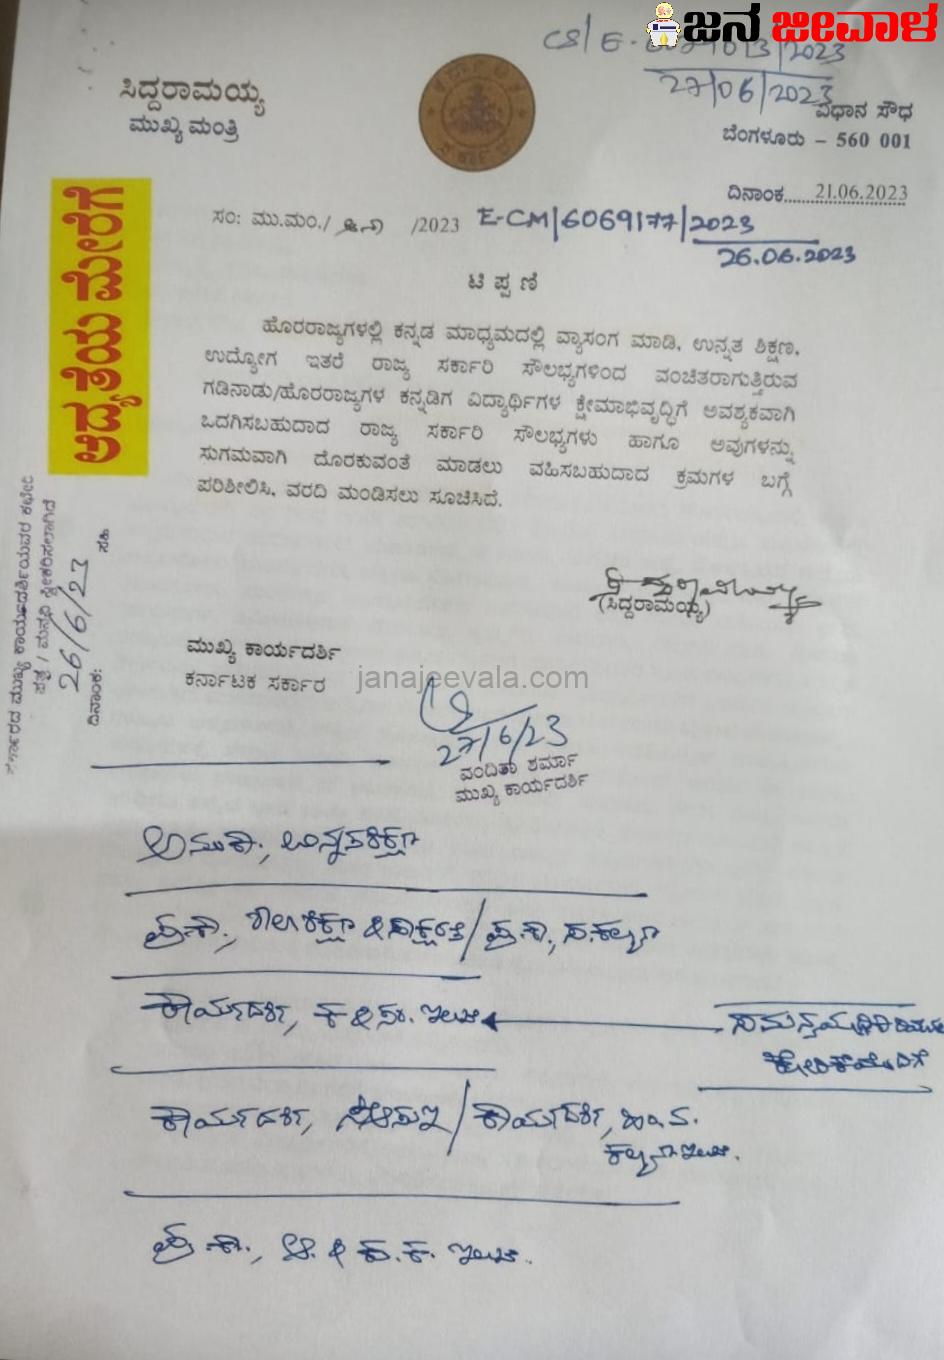 ಜನ ಜೀವಾಳ
27/06/2023
ಸಿದ್ದರಾಮಯ್ಯ
ಮುಖ್ಯ ಮಂತ್ರಿ
ವಿಧಾನ ಸೌಧ
ಬೆಂಗಳೂರು – 560 001
ದಿನಾಂಕ......21.06.2023
ಸಂ: ಮು.ಮಂ./ /2023 E-CM/6069177/2023
26.06.2023
ಆದ್ಯತೆಯ ಮೇರೆಗೆ
ಟಿಪ್ಪಣಿ
ಹೊರರಾಜ್ಯಗಳಲ್ಲಿ ಕನ್ನಡ ಮಾಧ್ಯಮದಲ್ಲಿ ವ್ಯಾಸಂಗ ಮಾಡಿ, ಉನ್ನತ ಶಿಕ್ಷಣ,
ಉದ್ಯೋಗ ಇತರೆ ರಾಜ್ಯ ಸರ್ಕಾರಿ ಸೌಲಭ್ಯಗಳಿಂದ ವಂಚಿತರಾಗುತ್ತಿರುವ
ಗಡಿನಾಡು/ಹೊರರಾಜ್ಯಗಳ ಕನ್ನಡಿಗ ವಿದ್ಯಾರ್ಥಿಗಳ ಕ್ಷೇಮಾಭಿವೃದ್ಧಿಗೆ ಅವಶ್ಯಕವಾಗಿ
ಒದಗಿಸಬಹುದಾದ ರಾಜ್ಯ ಸರ್ಕಾರಿ ಸೌಲಭ್ಯಗಳು ಹಾಗೂ ಅವುಗಳನ್ನು
ಸುಗಮವಾಗಿ ದೊರಕುವಂತೆ ಮಾಡಲು ವಹಿಸಬಹುದಾದ ಕ್ರಮಗಳ ಬಗ್ಗೆ
ಪರಿಶೀಲಿಸಿ, ವರದಿ ಮಂಡಿಸಲು ಸೂಚಿಸಿದೆ.
(ಸಿದ್ದರಾಮಯ್ಯ)
ಸರ್ಕಾರದ ಮುಖ್ಯ ಕಾರ್ಯದರ್ಶಿಯವರ ಕಛೇರಿ
ಪತ್ರ / ಮನವಿ ಸ್ವೀಕರಿಸಲಾಗಿದೆ
26/6/23
ದಿನಾಂಕ: ಸಹಿ
ಮುಖ್ಯ ಕಾರ್ಯದರ್ಶಿ
ಕರ್ನಾಟಕ ಸರ್ಕಾರ
janajeevala.com
27/6/23
ವಂದಿತಾ ಶರ್ಮಾ
ಮುಖ್ಯ ಕಾರ್ಯದರ್ಶಿ
ಅಮುಕಾ, ಉನ್ನತಶಿಕ್ಷಣ
ಪ್ರ.ಕಾ., ಶಾಲಾಶಿಕ್ಷಣ & ಸಾಕ್ಷರತೆ / ಪ್ರ.ಕಾ.,
ಕಾರ್ಯದರ್ಶಿ, ಕ & ಸಂ. ಇಲಾಖೆ
ಕಾರ್ಯದರ್ಶಿ, / ಕಾರ್ಯದರ್ಶಿ, ಹಿಂ.ವ.
ಕಲ್ಯಾಣ ಇಲಾಖೆ.
ಪ್ರ.ಕಾ., ಇಲಾಖೆ.